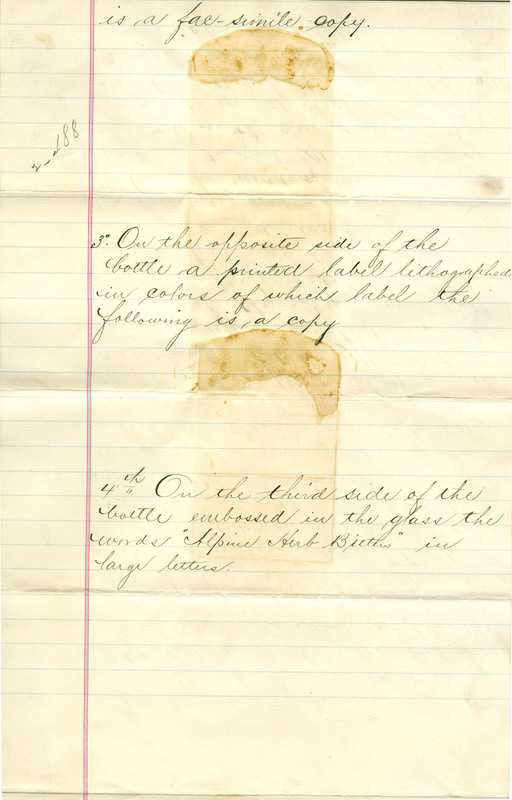 is a fac-simile copy.
3° On the opposite side of the
bottle a printed label lithographed
in colors of which label the
following is a copy
4th On the third side of the
bottle embossed in the glass the
words "Alpine Herb Bitters" in
large letters.